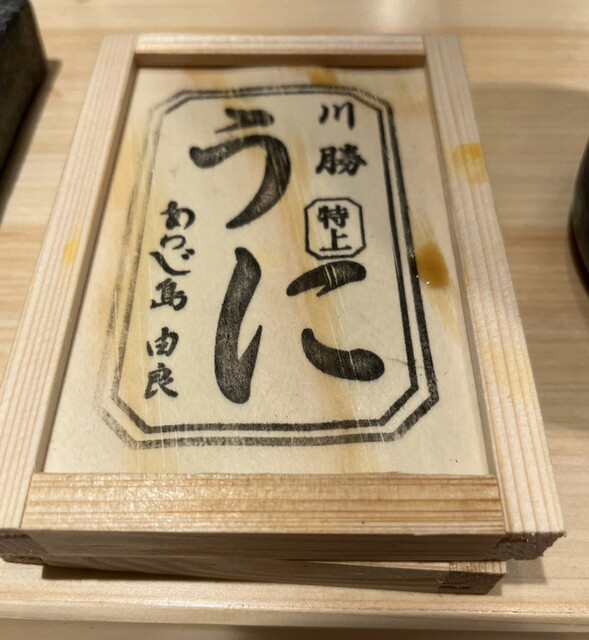 川勝
特上
うに
あわじ島 由良